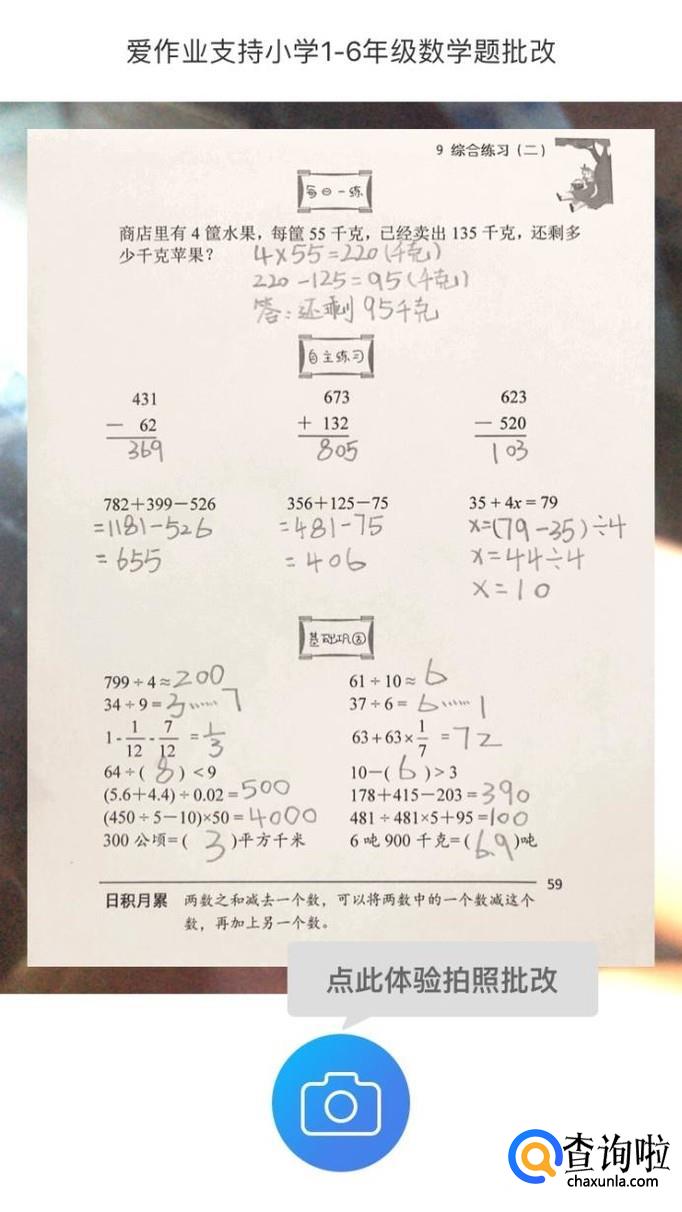 爱作业支持小学1-6年级数学题批改
9 综合练习(二)
每日一练
商店里有 4 筐水果，每筐 55 千克，已经卖出 135 千克，还剩多
少千克苹果？ 4×55=220(千克)
220-125=95(千克)
答：还剩95千克
自主练习
431 673 623
— 62 + 132 — 520
369 805 103
782+399-526 356+125-75 35+4x=79
=1181-526 =481-75 x=(79-35)÷4
=655 =406 x=44÷4
x=10
基础巩固
799÷4≈200 61÷10≈6
34÷9=3……7 37÷6=6……1
1-1/12-7/12=1/3 63+63×1/7=72
64÷(8)<9 10-(6)>3
(5.6+4.4)÷0.02=500 178+415-203=390
(450÷5-10)×50=4000 481÷481×5+95=100
300 公顷=(3)平方千米 6 吨 900 千克=(6.9)吨
59
日积月累 两数之和减去一个数，可以将两数中的一个数减这个
数，再加上另一个数。
点此体验拍照批改
查询啦
chaxunla.com